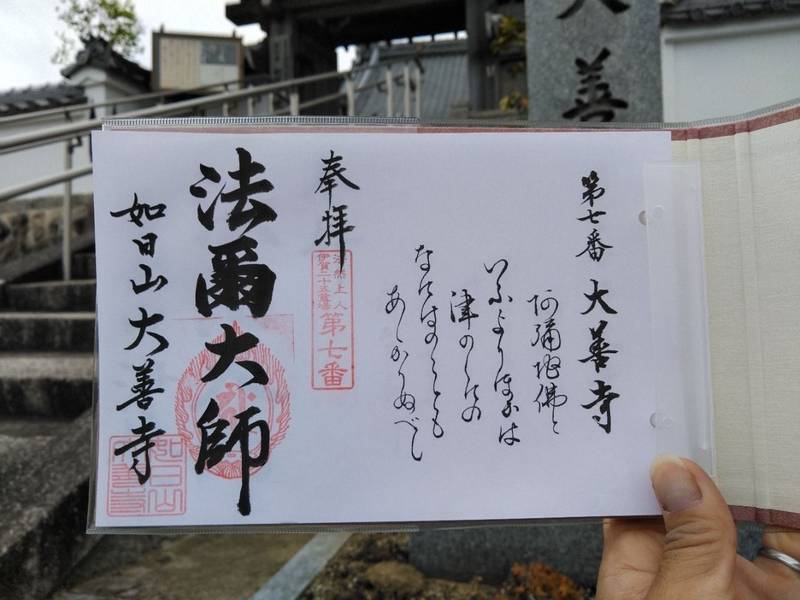 大善
第七番 大善寺
阿彌陀佛と
いふよりほかは
津のくにの
なにはのことも
あしかりぬべし
奉拝
法然上人
伊賀二十五霊場
第七番
法爾大師
如日山大善寺
如日山
大善寺